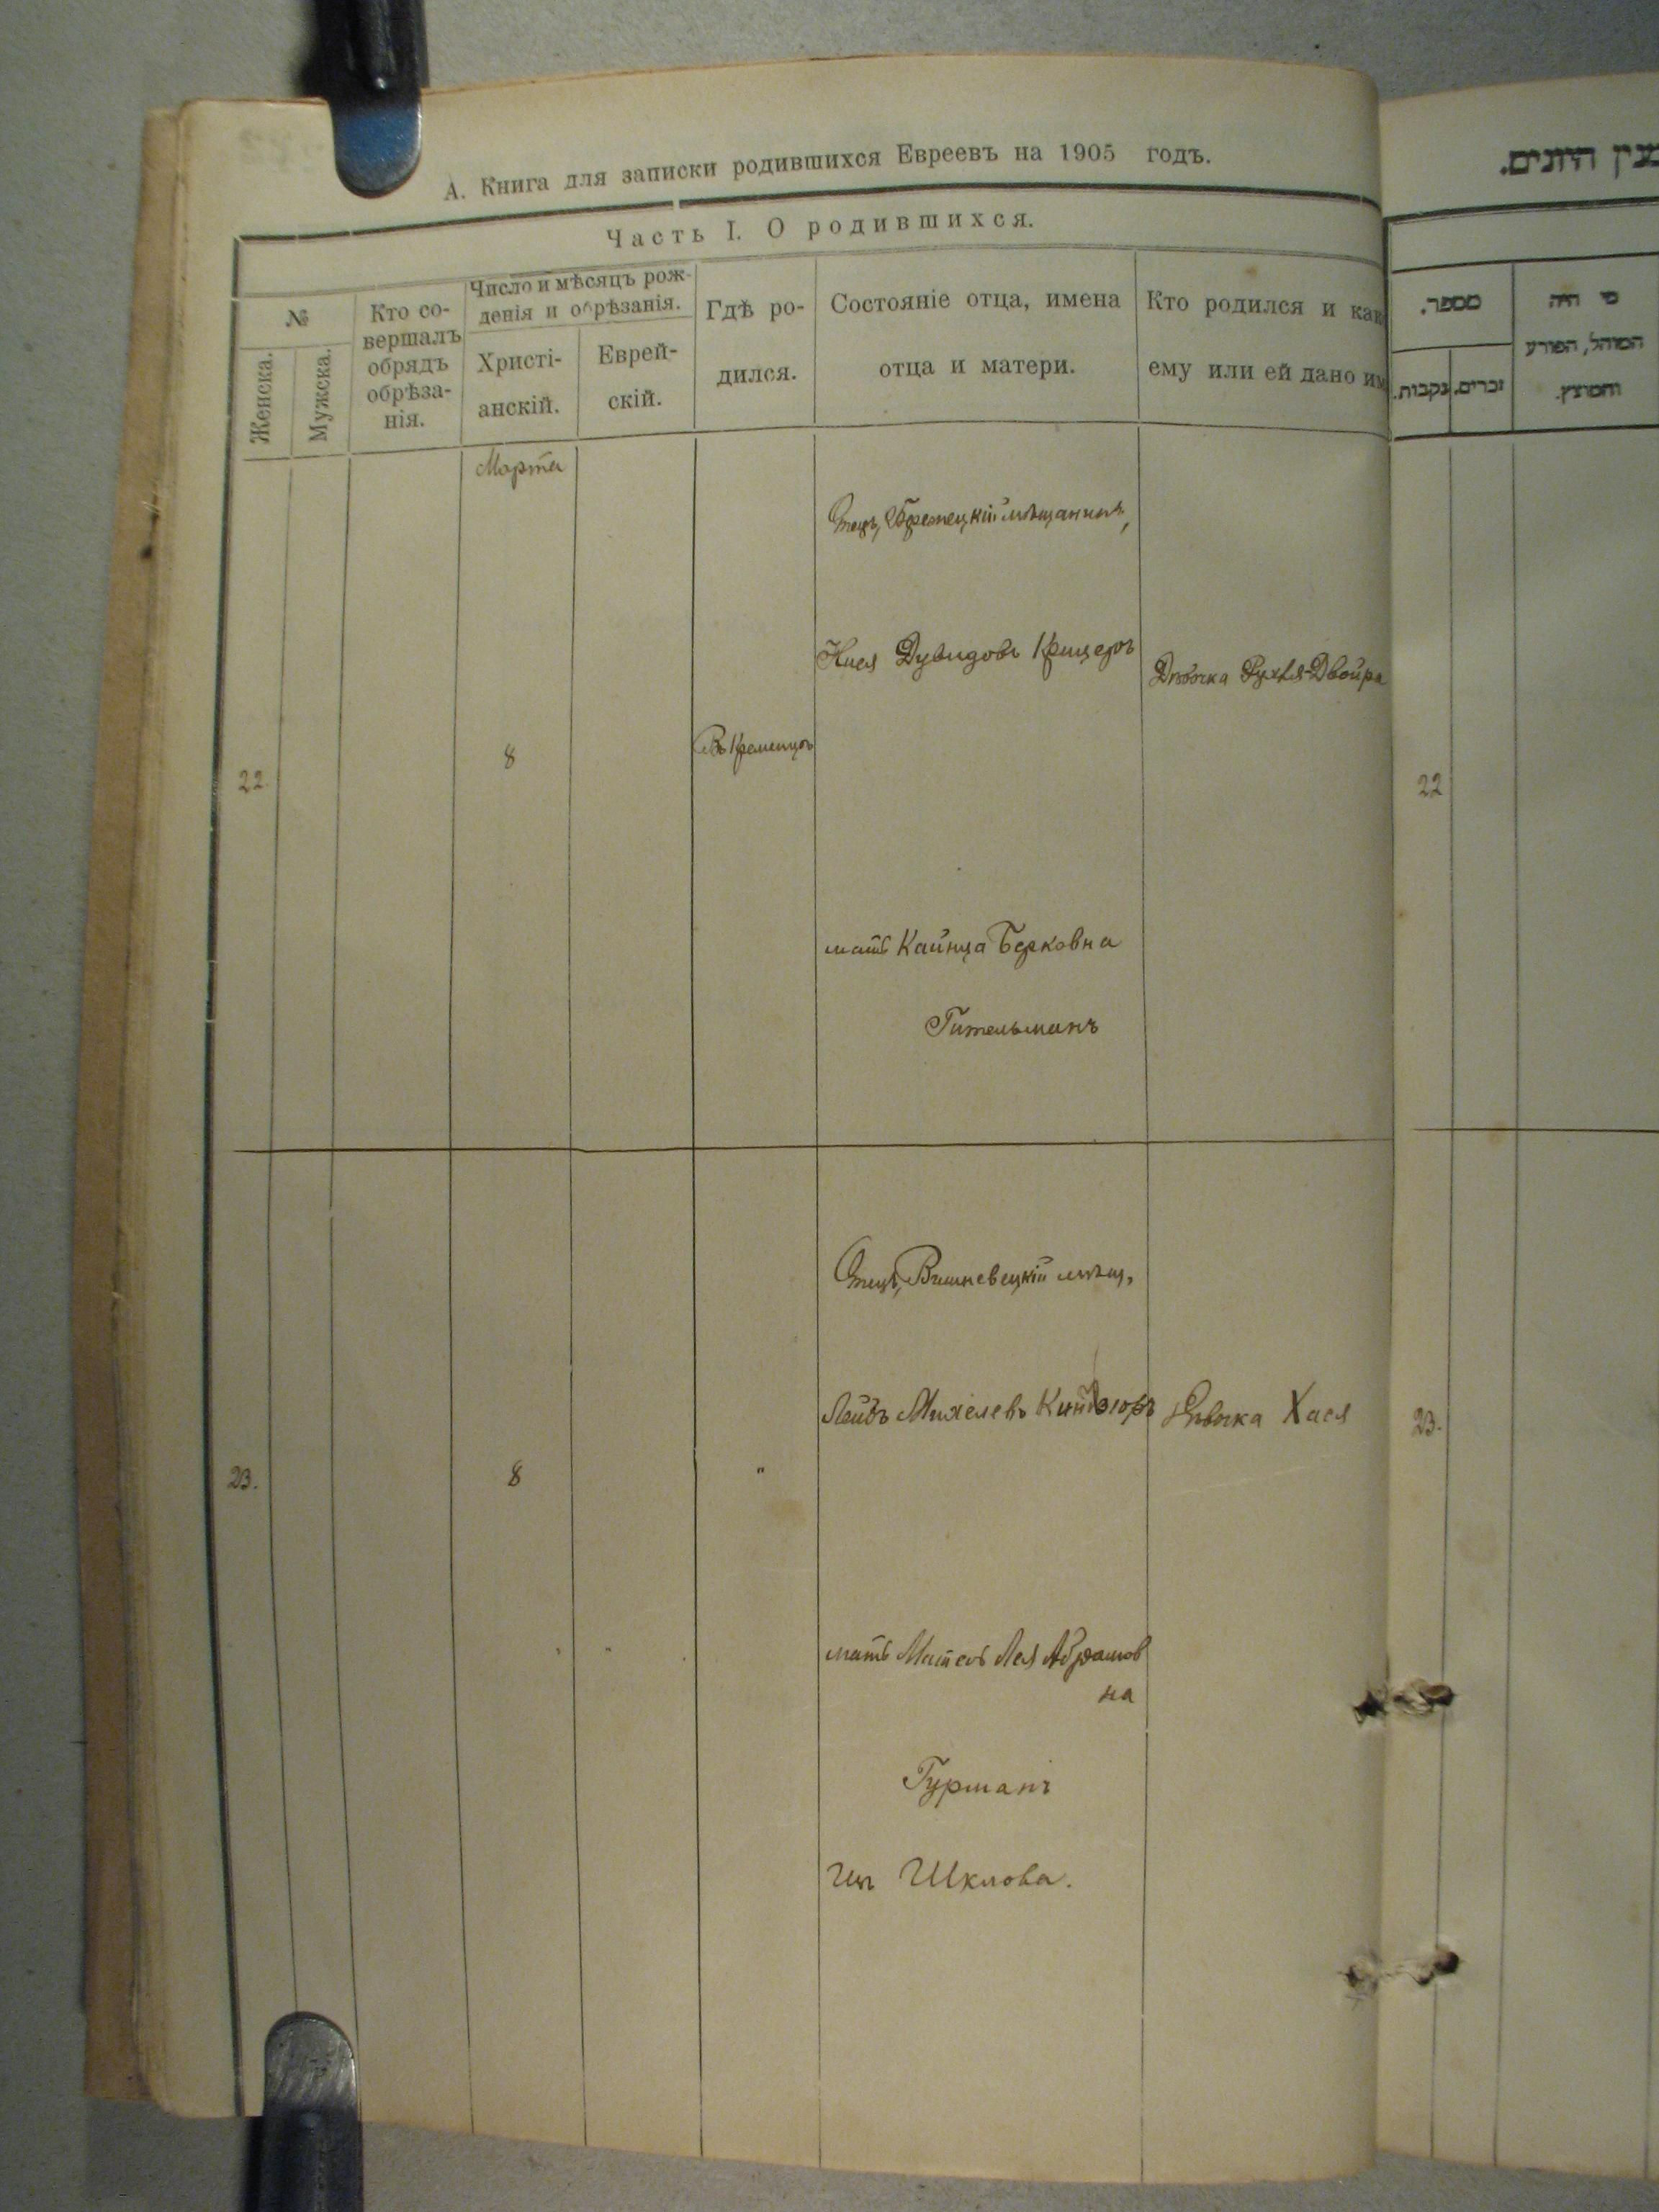 А. Книга для записки родившихся Евреевъ на 1905 годъ.
Часть I. О родившихся.
№
Женска.
Мужска.
Кто со-
вершалъ
обрядъ
обрѣза-
нія.
Число и мѣсяцъ рож-
денія и обрѣзанія.
Христі-
анскій.
Еврей-
скій.
Гдѣ ро-
дился.
Состояніе отца, имена
отца и матери.
Кто родился и как
ему или ей дано им
Марта
22.
8
Въ Кременцѣ
Отецъ, мѣщанинъ,
Дувидовъ Крицеръ
мать Кайнца Берковна
Гительманъ
Дѣвочка Рухля-Двойра
23.
8
"
Отецъ, Вишневецкій мѣщ,
Лейбъ Михелевъ
мать Матель Лея Абрамов
на
Гурманъ
Изъ Шклова.
Дѣвочка Хася
מספר.
נקבות.
זכרים.
מי היה
המוהל, הפורע
והמוצץ.
22
23.